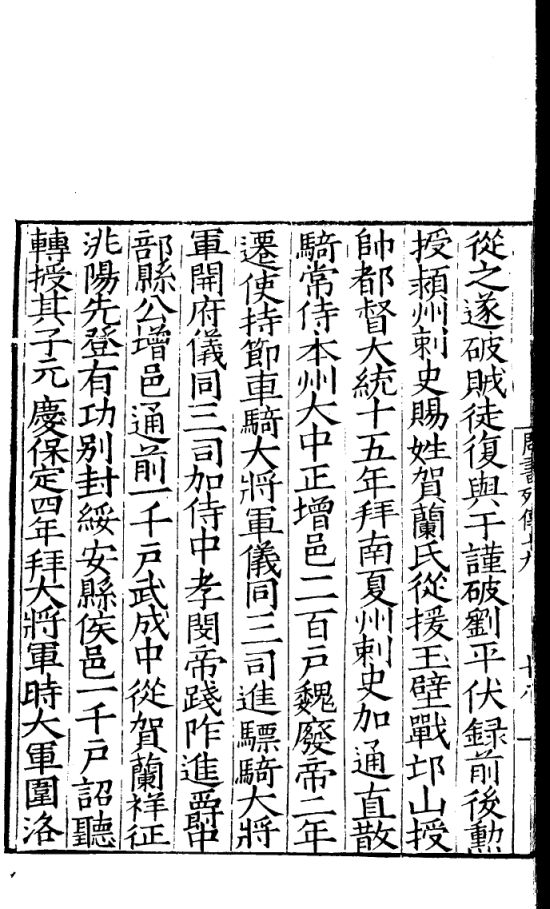 從之遂破賊徒復與于謹破劉平伏録前後勲
授潁州刺史賜姓賀蘭氏從援玉壁戰邙山授
帥都督大統十五年拜南夏州刺史加通直散
騎常侍本州大中正增邑二百戸魏廢帝二年
遷使持節車騎大將軍儀同三司進驃騎大將
軍開府儀同三司加侍中孝閔帝踐阼進爵中
部縣公增邑通前一千戸武成中從賀蘭祥征
洮陽先登有功别封綏安縣侯邑一千戸詔聽
轉授其子元慶保定四年拜大將軍時大軍圍洛